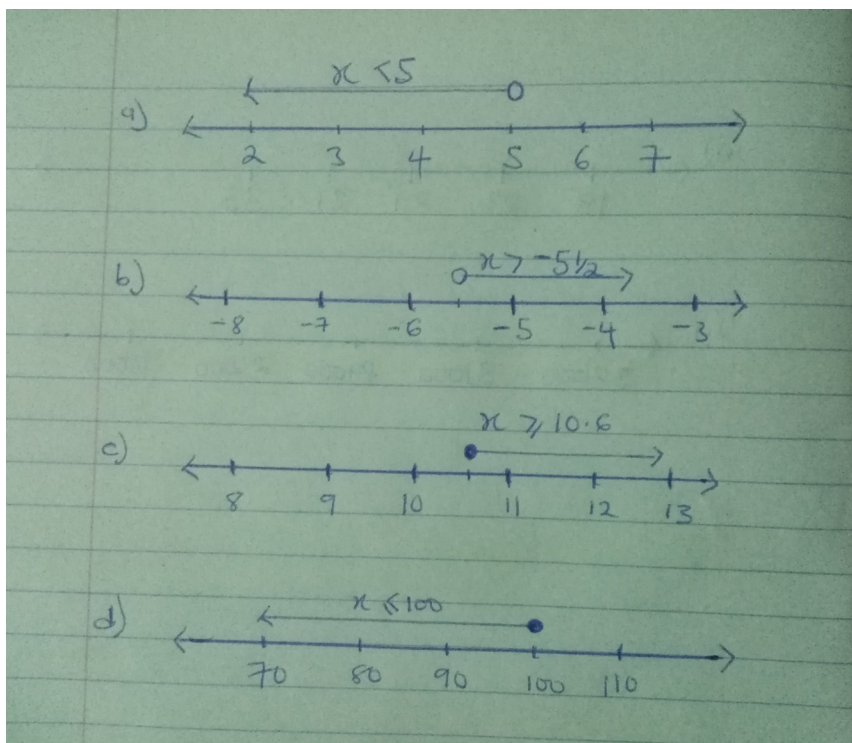 x < 5
a)
2 3 4 5 6 7
x > -5 1/2
b)
-8 -7 -6 -5 -4 -3
x ⩾ 10.6
c)
8 9 10 11 12 13
x ⩽ 100
d)
70 80 90 100 110